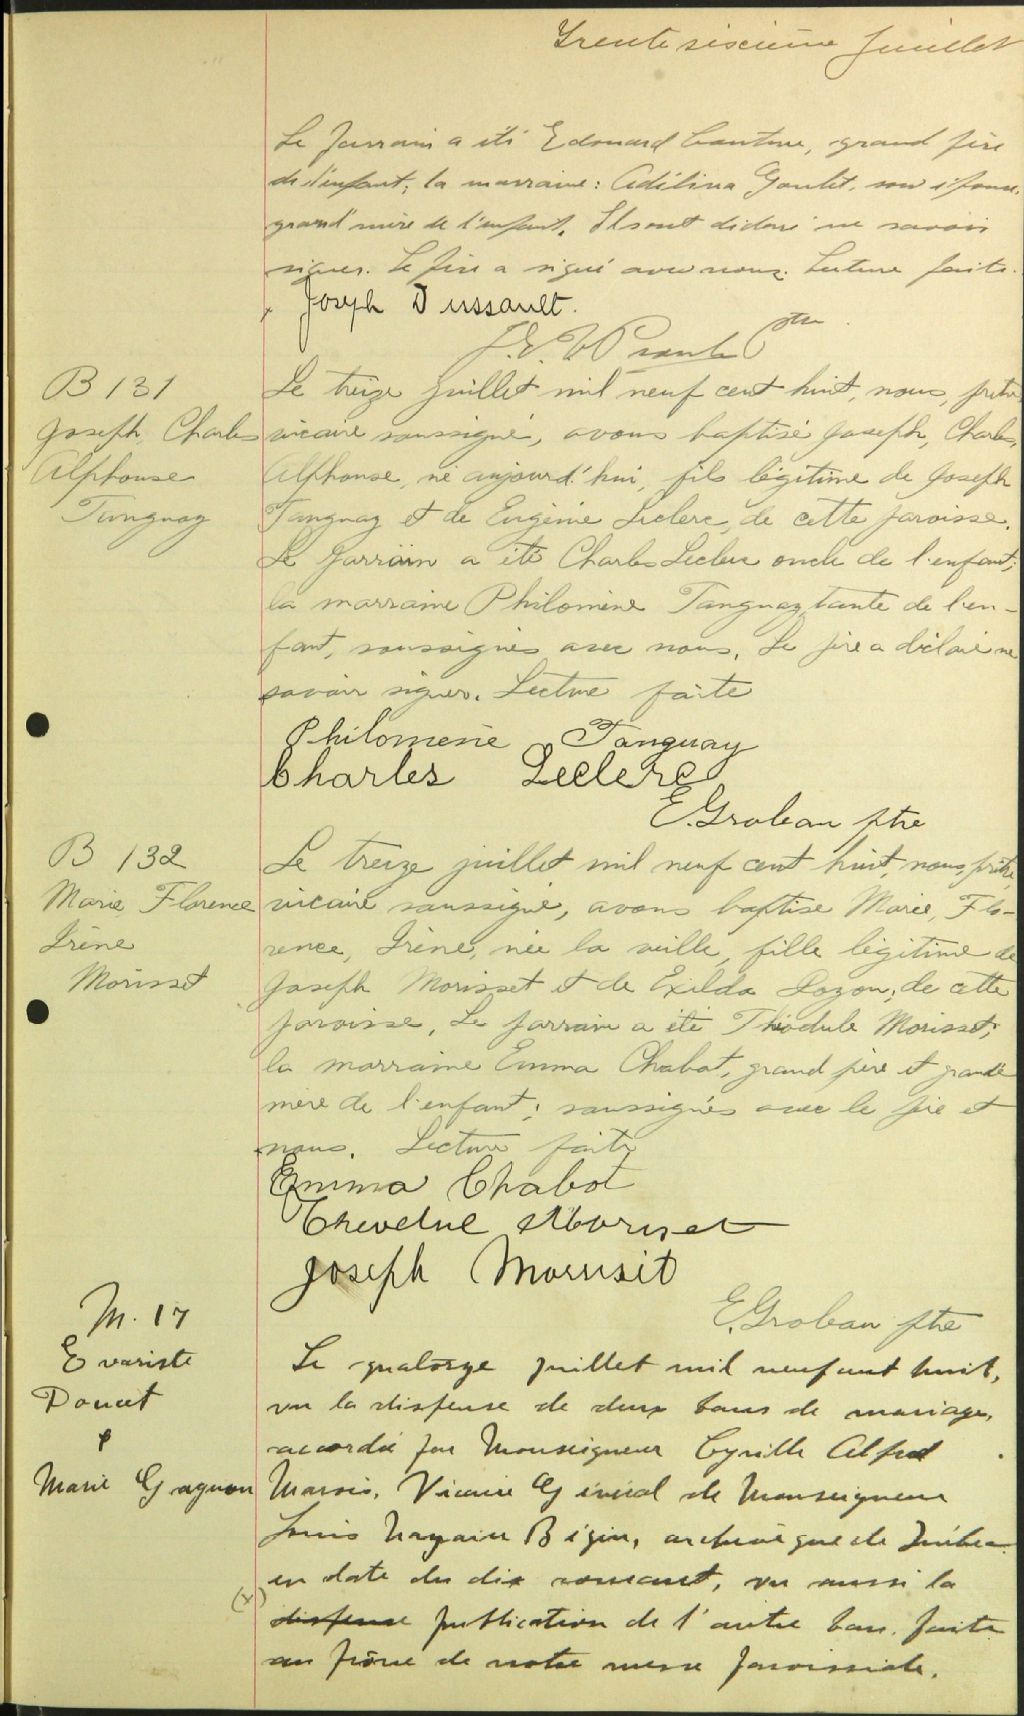 Trente sixième feuillet
Le parrain a été Edouard Couture, grand père
de l'enfant; la marraine: Adélina Goulet, son épouse,
grand'mère de l'enfant. Ils ont déclaré ne savoir
signer. Le père a signé avec nous. Lecture faite.
Joseph Dussault.
Ptre
B 131
Joseph, Charles
Alphonse
Tanguay
Le treize juillet mil neuf cent huit, nous, prêtre
vicaire soussigné, avons baptisé Joseph, Charles,
Alphonse, né aujourd'hui, fils légitime de Joseph
Tanguay et de Eugénie Leclerc, de cette paroisse.
Le parrain a été Charles Leclerc oncle de l'enfant;
la marraine Philomène Tanguay, tante de l'en-
fant, soussignés avec nous. Le père a déclaré ne
savoir signer. Lecture faite
Philomene Tanguay
Charles Leclerc
E. Groleau ptre
B 132
Marie, Florence
Irène
Morisset
Le treize juillet mil neuf cent huit, nous, prêtre,
vicaire soussigné, avons baptisé Marie, Flo-
rence, Irène, née la veille, fille légitime de
Joseph Morisset et de Exilda Pozon, de cette
paroisse. Le parrain a été Théodule Morisset;
la marraine Emma Chabot, grand père et grand
mère de l'enfant; soussignés avec le père et
nous. Lecture faite
Emma Chabot
Joseph Morrisit
E. Groleau ptre
M. 17
Evariste
Doucet
&
Marie Gagnon
Le quatorze juillet mil neuf cent huit,
vu la dispense de deux bans de mariage,
accordée par Monseigneur Cyrille Alfred
Marois, Vicaire Général de Monseigneur
Louis Nazaire Bégin, archevêque de Québec
en date du dix courant, vu aussi la
(x) dispense publication de l'autre ban faite
au prône de notre messe paroissiale.